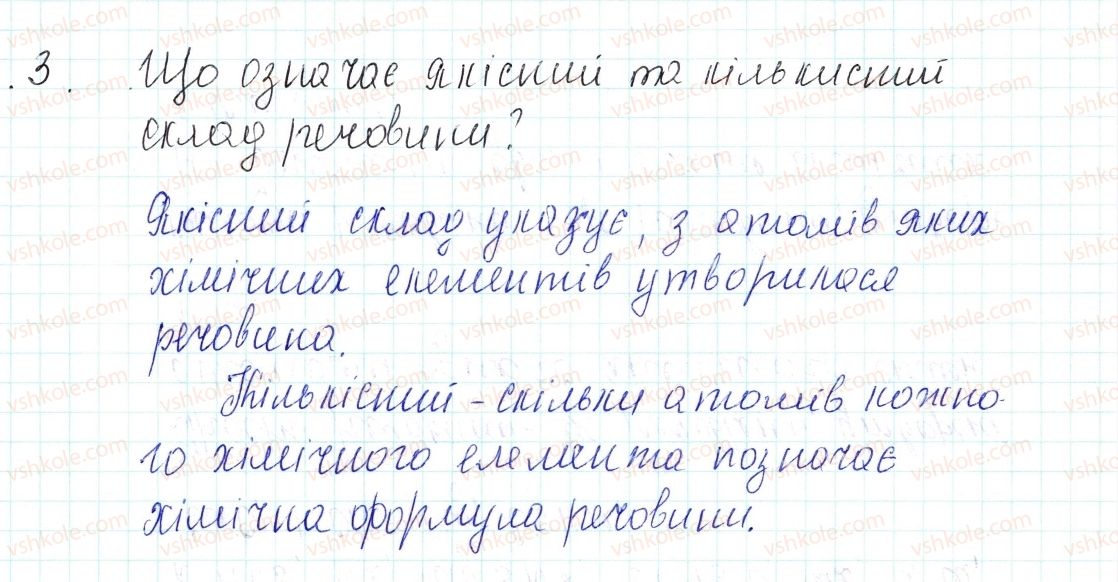 3. Що означає якісний та кількисний
склад речовини?
Якісний склад указує, з атомів яких
хімічних елементів утворилася
речовина.
Кількісний - скільки атомів кожно-
го хімічного елемента позначає
хімічна формула речовини.